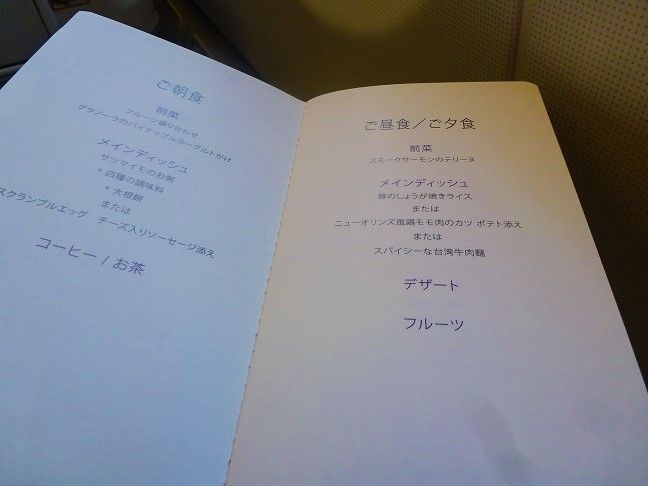 ご朝食
前菜
フルーツ盛り合わせ
グラノーラのパイナップルヨーグルトがけ
メインディッシュ
サツマイモのお粥
* 四種の調味料
* 大根餅
または
スクランブルエッグ チーズ入りソーセージ添え
コーヒー / お茶
ご昼食／ご夕食
前菜
スモークサーモンのテリーヌ
メインディッシュ
豚のしょうが焼きライス
または
ニューオリンズ風鶏モモ肉のカツ ポテト添え
または
スパイシーな台湾牛肉麺
デザート
フルーツ